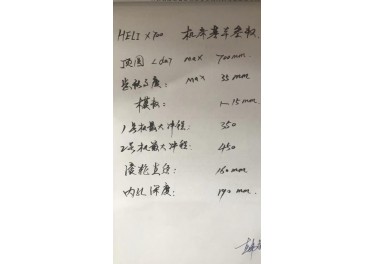 HELI X700 机床基本参数
顶圆 Lday Max 700mm
齿轮高度: Max 35mm
模数: 1-15mm
1号机最大冲程: 350
2号机最大冲程: 450
滚轮直径: 160mm
内孔深度: 190mm